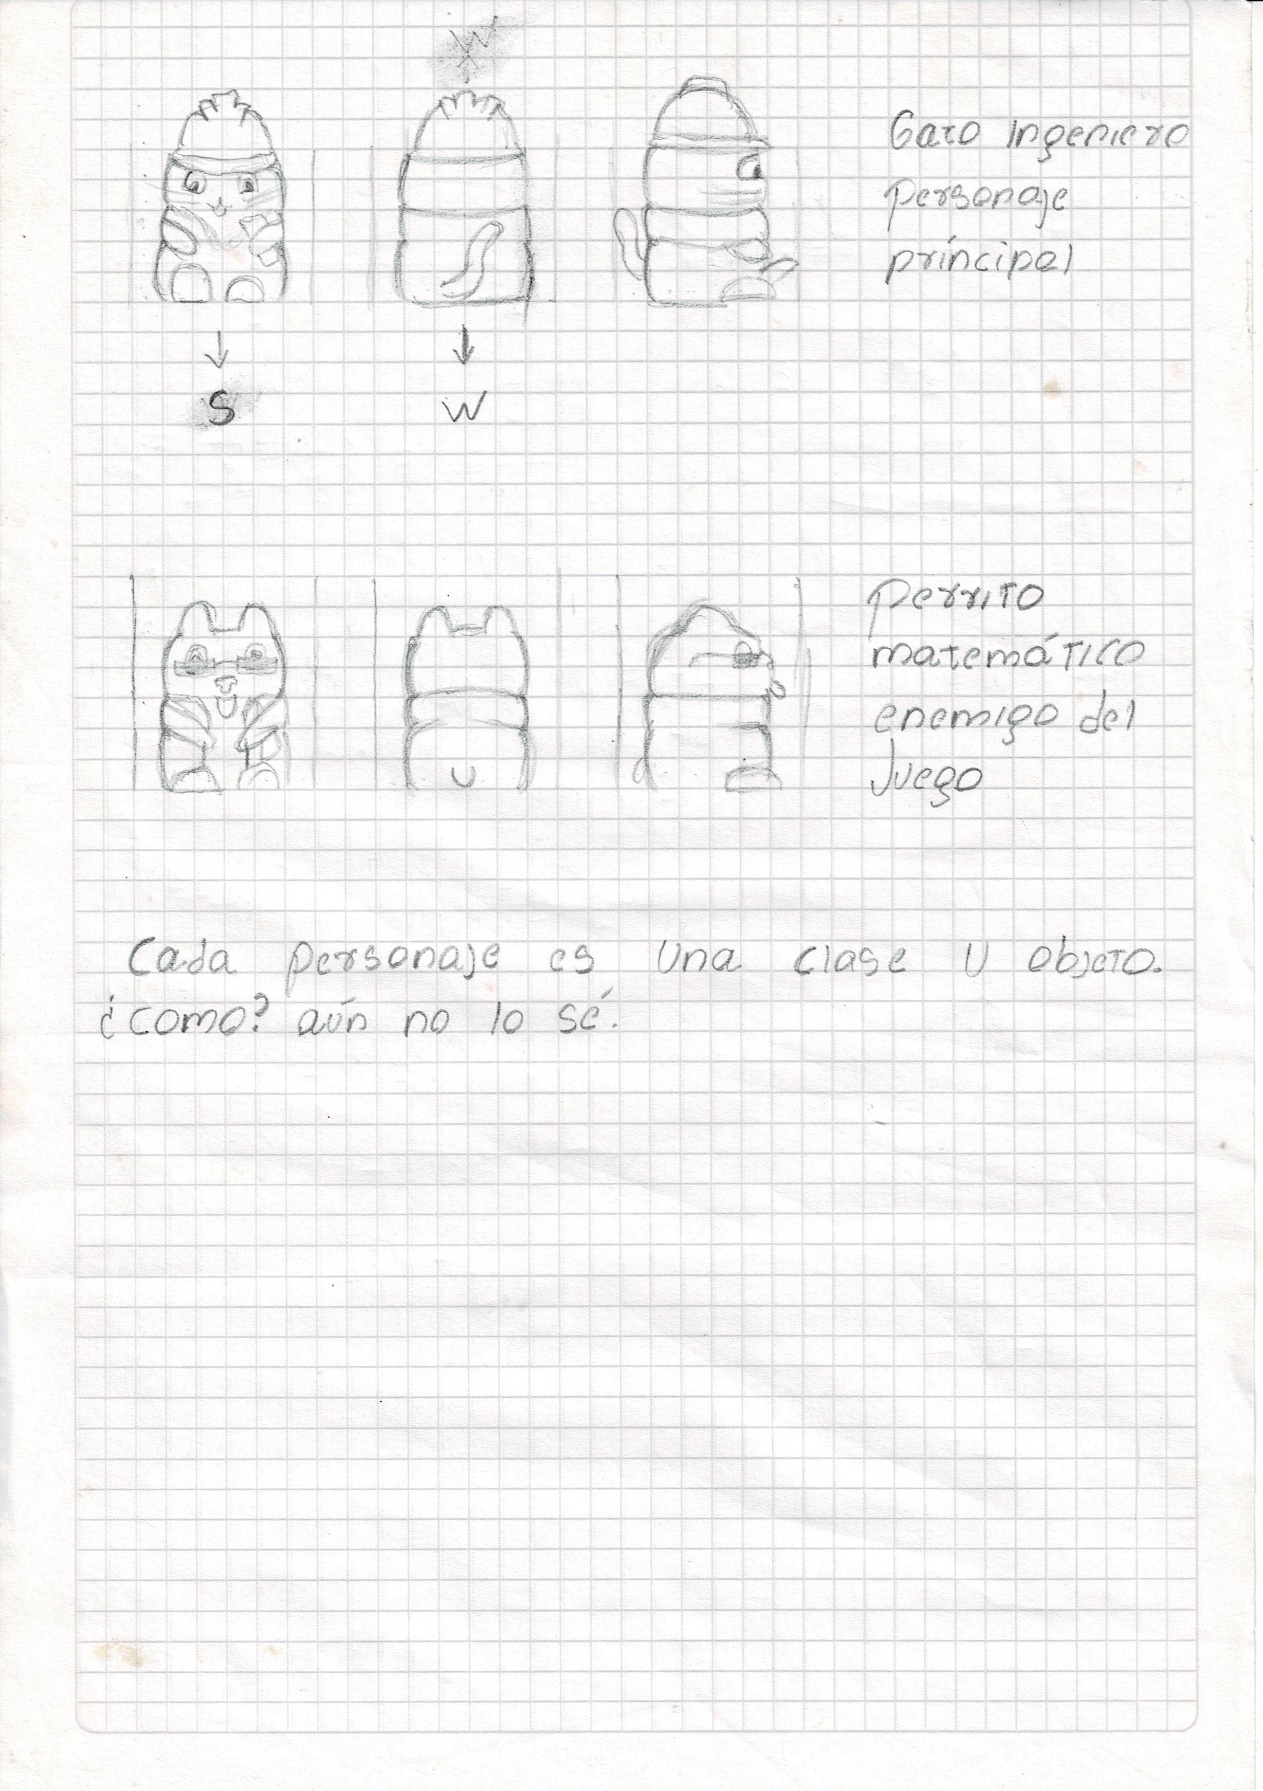 Gato Ingeniero
personaje
príncipal
S
W
perrito
matemático
enemigo del
Juego
Cada personaje es Una clase U objeto.
¿como? aún no lo sé.